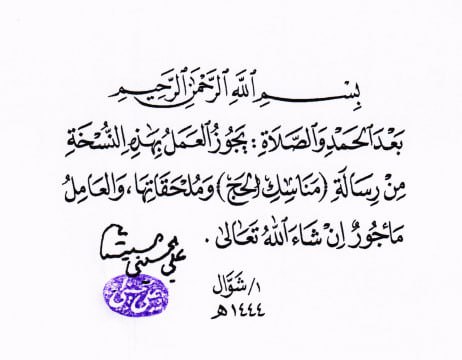 بِسْمِ اللهِ الرَّحْمٰنِ الرَّحِيمِ
بَعْدَ الحَمْدِ وَالصَّلَاةِ: يَجُوزُ العَمَلُ بِهٰذِهِ النُّسْخَةِ
مِنْ رِسَالَةِ (مَنَاسِكِ الحَجّ) وَمُلْحَقَاتِهَا، وَالعَامِلُ
مَأْجُورٌ اِنْ شَاءَ اللهُ تَعَالىٰ.
علي الحسيني السيستاني
١/ شَوَّال
١٤٤٤هـ